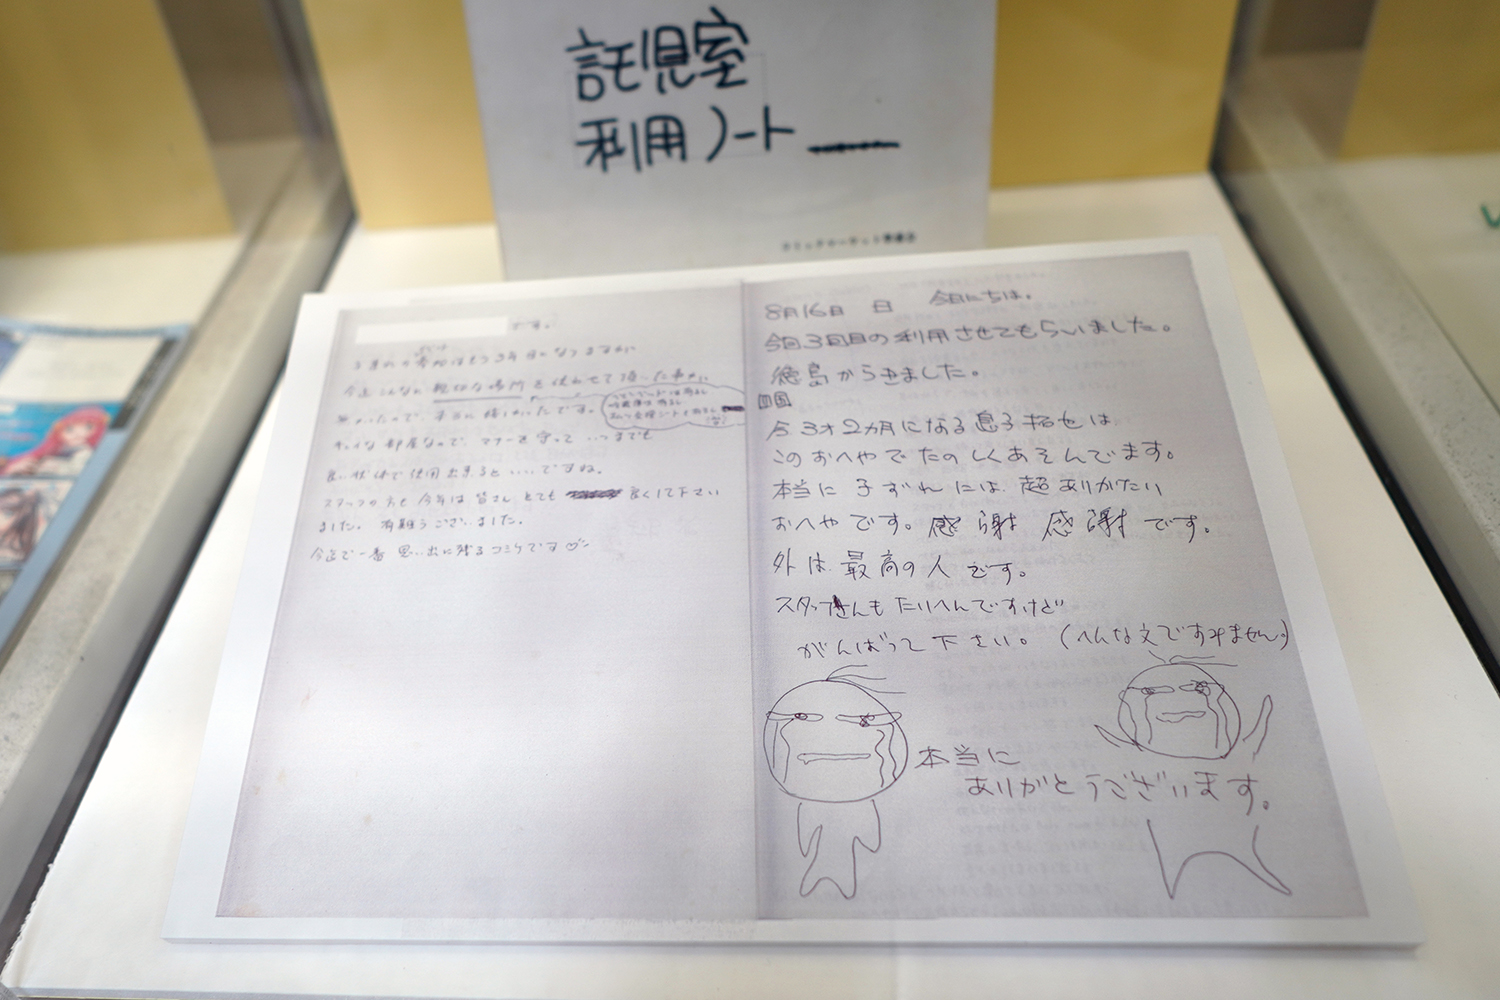 託児室
利用ノート
コミックマーケット準備会
です。
子連れの参加はもう3年目になりますが
今迄こんなに親切な場所を使わせて頂いた事が
無かったので、本当に嬉しかったです。
キレイな部屋なので、マナーを守って いつまでも
良い状体で使用出来るといいですね。
スタッフの方も今年は皆さんとても 良くして下さい
ました。有難うございました。
今迄で一番 思い出に残るコミケです♡
8月16日 日 今日にちは。
今回3回目の利用させてもらいました。
徳島からきました。
四国
今3才2カ月になる息子拓也は
このおへやでたのしくあそんでます。
本当に子ずれには超ありがたい
おへやです。感謝 感謝です。
外は最高の人です。
スタッフさんもたいへんですけど
がんばって下さい。(へんな文ですみません。)
本当に
ありがとうございます。